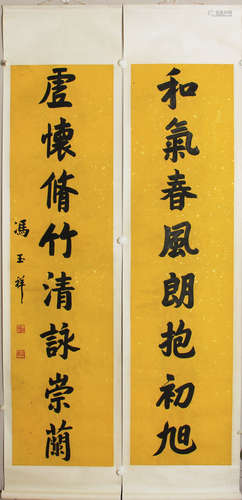 和氣春風朗抱初旭
虛懷脩竹清詠崇蘭
馮玉祥